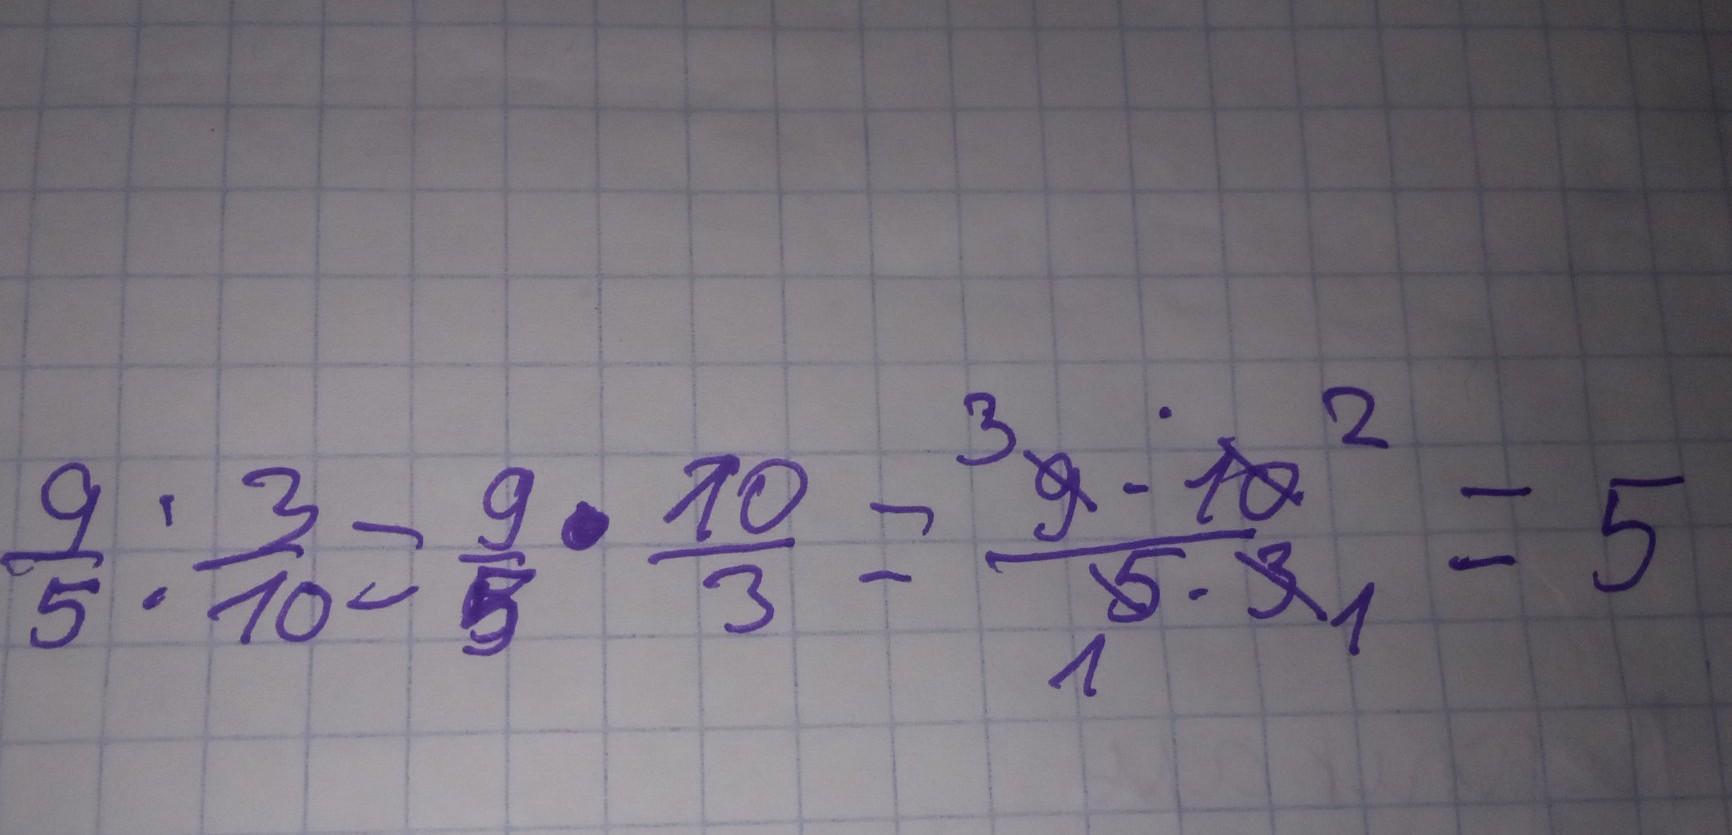 9/5 : 3/10 = 9/5 • 10/3 = 3 9 · 10 2 / 1 5 · 3 1 = 5